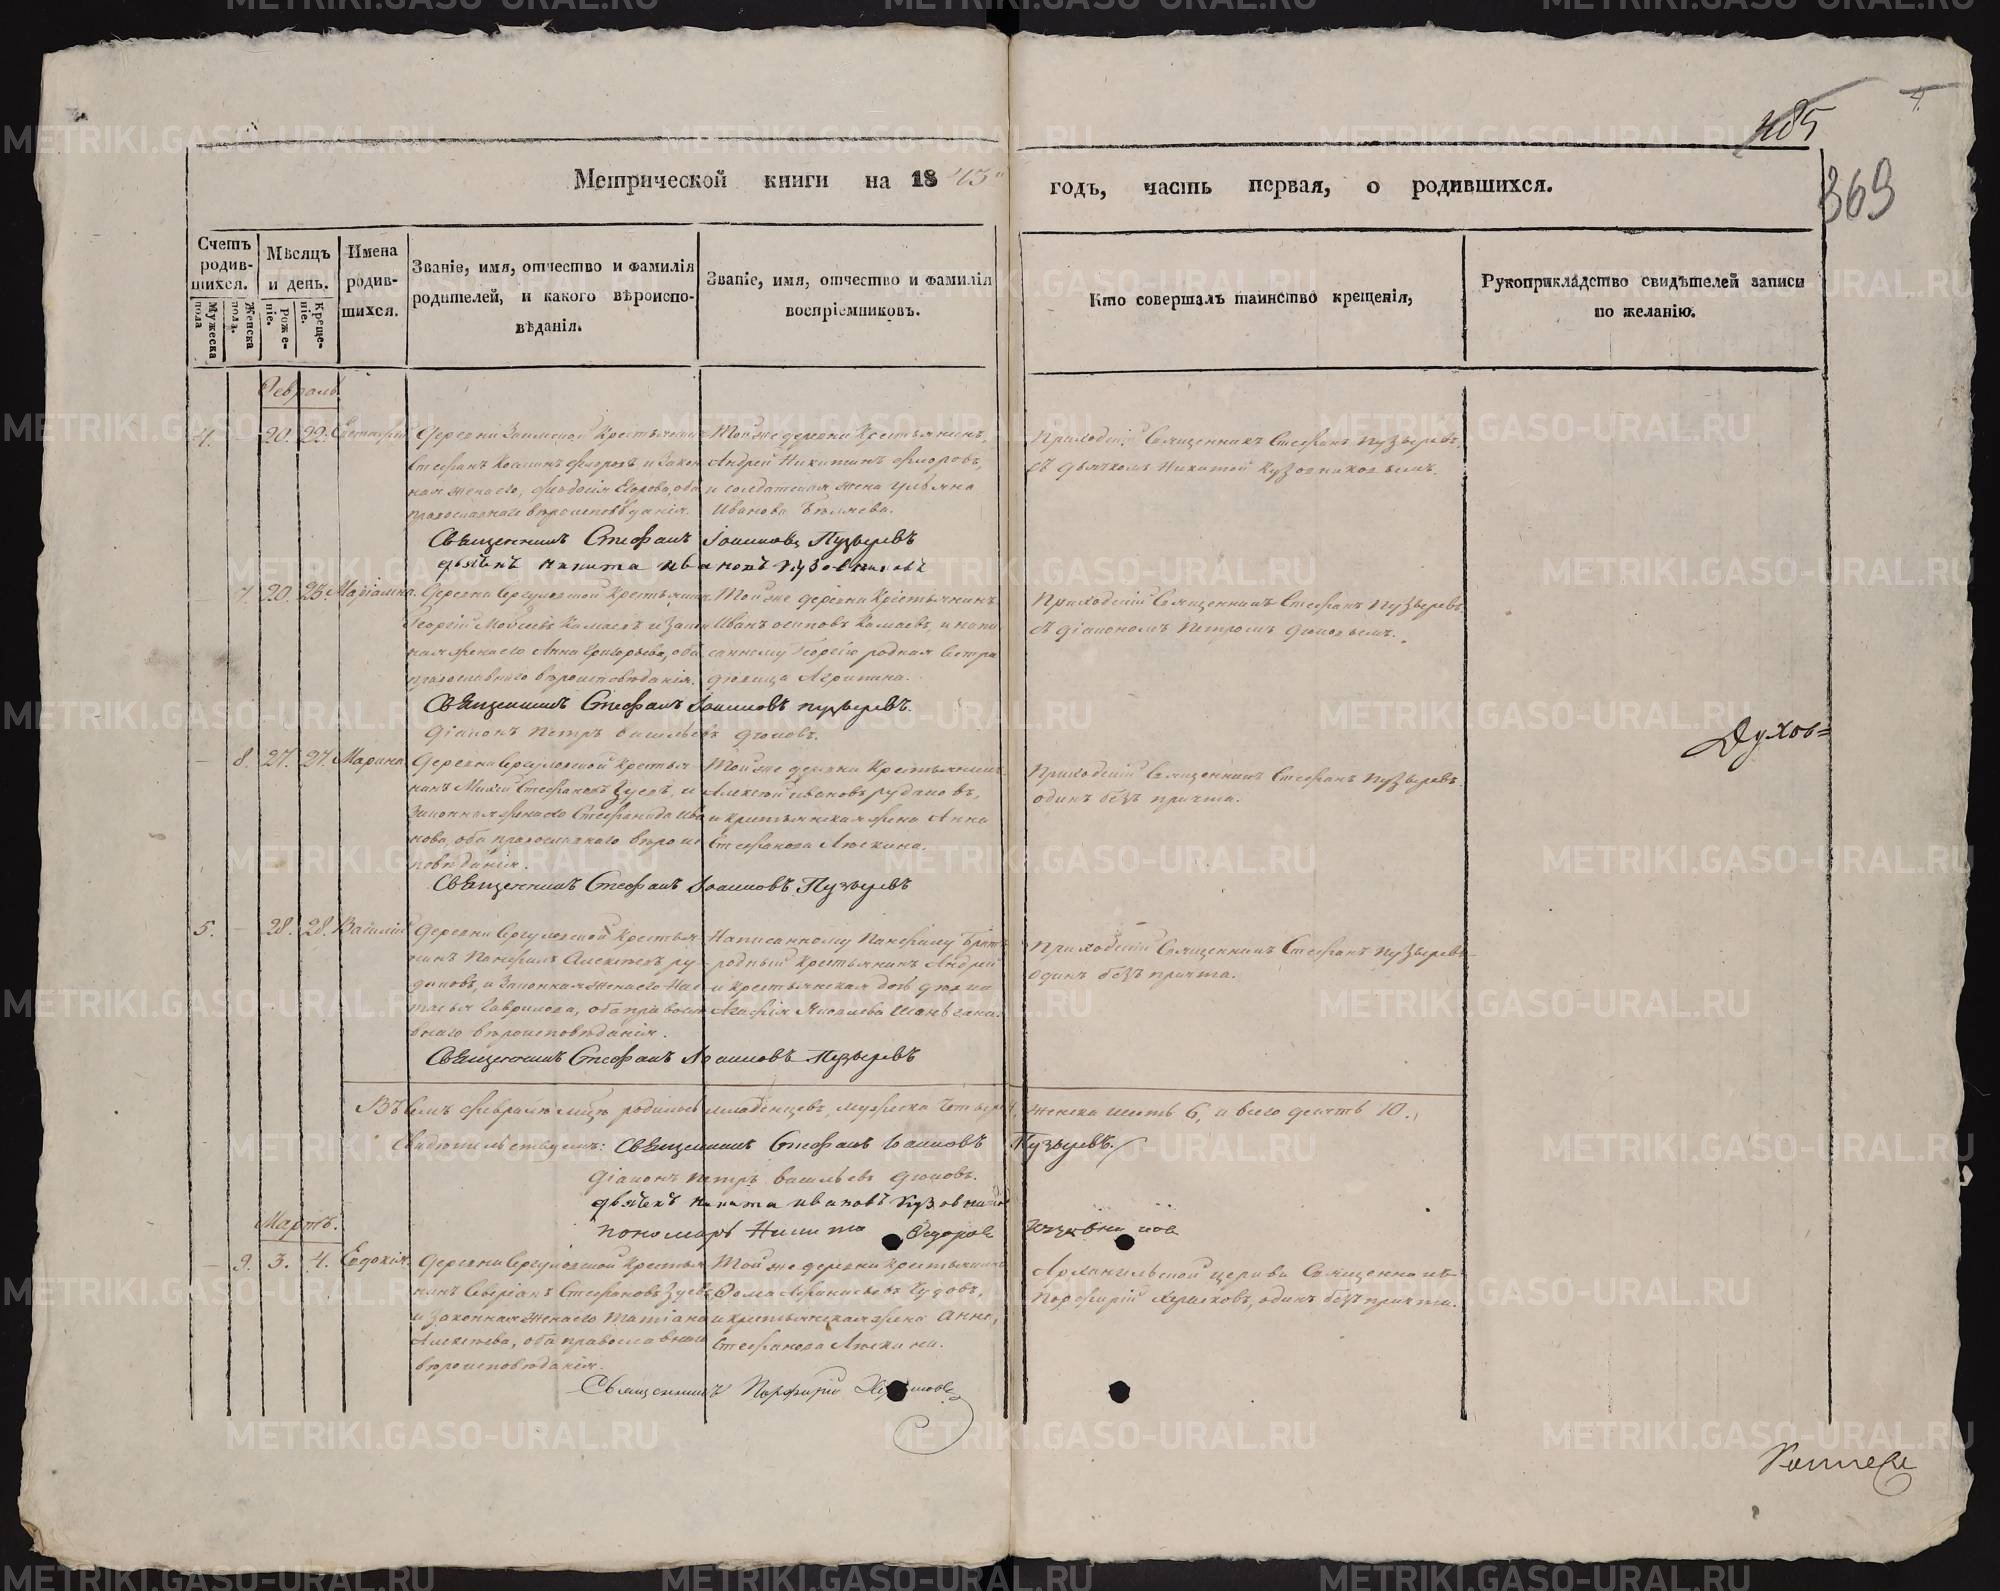 485
4
369
Метрической книги на 1843 годъ, часть первая, о родившихся.
Счетъ родив-шихся.
Мужеска пола
Женска пола.
Мѣсяцъ и день.
Рожде-ніе.
Креще-ніе.
Имена родив-шихся.
Званіе, имя, отчество и фамилія родителей, и какого вѣроиспо-вѣданія.
Званіе, имя, отчество и фамилія воспріемниковъ.
Кто совершалъ таинство крещенія,
Рукоприкладство свидѣтелей записи по желанію.
Февраль
4. 20. 22.
Деревни Крестьянинъ
Стефанъ Флоровъ и закон
ная жена его, Феодосія Егорова, оба
православнаго вѣроисповѣданія.
Той же деревни Крестьянинъ,
Андрей Никитинъ Флоровъ,
и солдатская жена Ульяна
Иванова Бѣляева.
Приходскій Священникъ Стефанъ Пузыревъ,
съ дьячкомъ Никитой Кузовниковымъ.
Священникъ Стефанъ Іоанновъ Пузыревъ
дьячекъ Никита Ивановъ Кузовниковъ
7. 20. 23. Маріамна.
Деревни Сергуловской Крестьянинъ
Георгій Моисеевъ Камаевъ и закон
ная жена его Анна Григорьева, оба
православнаго вѣроисповѣданія.
Той же деревни Крестьянинъ
Иванъ Осиповъ Камаевъ, и напи
санному Георгію родная сестра
дѣвица Агрипина.
Приходскій Священникъ Стефанъ Пузыревъ
съ діакономъ Петромъ
Священникъ Стефанъ Іоанновъ Пузыревъ.
Діаконъ Петръ Васильевъ
8. 27. 27. Марина
Деревни Сергуловской Крестья-
нинъ Стефановъ Зуевъ, и
законная жена его Стефанида Ива
нова, оба православнаго вѣроис
повѣданія.
Той же деревни Крестьянинъ
Алексѣй Ивановъ Рудаковъ,
и крестьянская жена Анна
Стефанова Люхина.
Приходскій Священникъ Стефанъ Пузыревъ
одинъ безъ причта.
Священникъ Стефанъ Іоанновъ Пузыревъ
5. 28. 28. Василій
Деревни Сергуловской Крестья
нинъ Панфилъ Алексѣевъ Ру-
даковъ, и законная жена его Нас
тасья Гаврилова, оба правосла
внаго вѣроисповѣданія.
Написанному Панфилу Братъ
родный Крестьянинъ Андрей
и крестьянская дочь дѣвица
Агафія Яковлева
Приходскій Священникъ Стефанъ Пузыревъ
одинъ безъ причта.
Священникъ Стефанъ Іоанновъ Пузыревъ
Въ семъ Февралѣ мцѣ родилось младенцевъ, мужеска четыре 4, женска шесть 6, и всего десять 10.
Свидѣтельствуемъ: Священникъ Стефанъ Іоанновъ Пузыревъ.
Діаконъ Петръ Васильевъ
дьячекъ Никита Ивановъ Кузовников
пономарь Никита Федоров Кузовников
Духов=
Мартъ.
9. 3. 4. Евдокія
Деревни Сергуловской Крестья
нинъ Северіанъ Стефановъ Зуевъ
и законная жена его Татіана
Алексѣева, оба православнаго
вѣроисповѣданія.
Той же деревни Крестьянинъ
Фома Афанасьевъ Чудовъ,
и крестьянская жена Анна,
Стефанова Люхина.
Архангельской церкви Священникъ
Порфирій одинъ безъ причта.
Священникъ Порфирій
METRIKI.GASO-URAL.RU